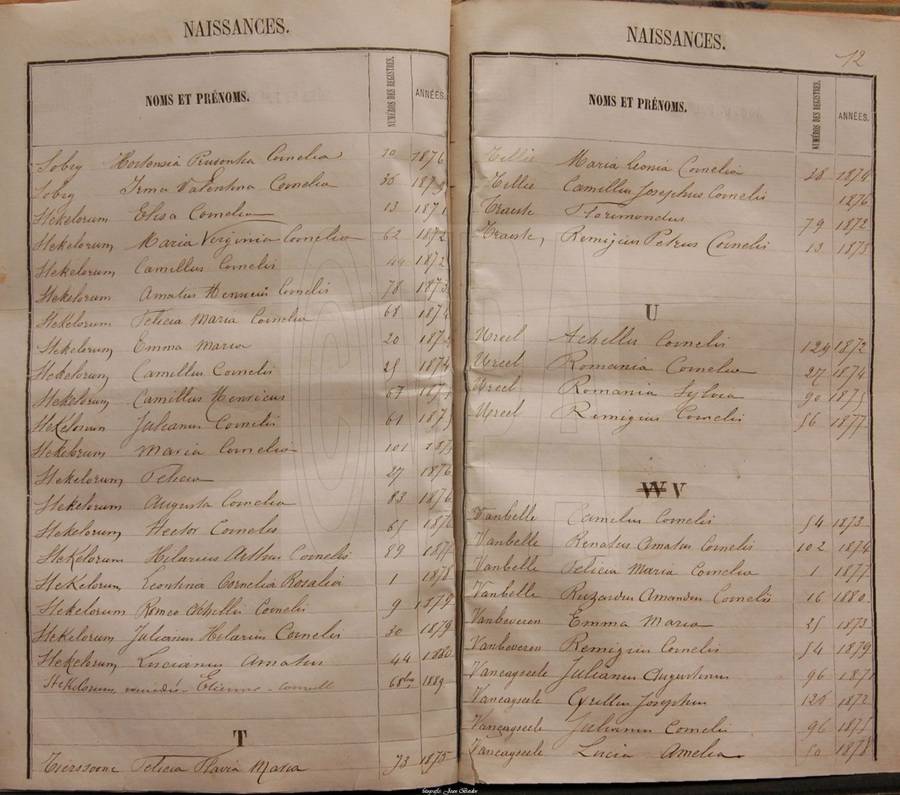 NAISSANCES.
NOMS ET PRÉNOMS.
NUMÉROS DES REGISTRES.
ANNÉES.
Sobry Hortensia Prudentia Cornelia 20 1876
Sobry Irma Valentina Cornelia 36
Stekelorum Elisa Cornelia 13 1871
Stekelorum Maria Virginia Cornelia 62 1872
Stekelorum Camillus Cornelis 1872
Stekelorum Amatus Henricus Cornelis 78 1873
Stekelorum Felicia Maria Cornelia 68 1874
Stekelorum Emma Maria 20
Stekelorum Camillus Cornelis 25 1874
Stekelorum Camillus Henricus 67
Stekelorum Julianus Cornelis 61 1875
Stekelorum Maria Cornelia 101
Stekelorum Felicia 27 1876
Stekelorum Augusta Cornelia 83 1876
Stekelorum Hector Cornelis 65 1876
Stekelorum Hilarius Arthur Cornelis 89 1877
Stekelorum Leontina Cornelia Rosalia 1 1878
Stekelorum Remeo Achilles Cornelis 9 1879
Stekelorum Julianus Hilarius Cornelis 30 1879
Stekelorum Lucianus Amatus 44 1880
Stekelorum Etienne Corneille 68bis 1889
T
Felicia Flavia Maria 73 1875
NAISSANCES.
12
NOMS ET PRÉNOMS.
NUMÉROS DES REGISTRES.
ANNÉES.
Tillie Maria Leonia Cornelia 28 1874
Tillie Camillus Josephus Cornelis 1876
Florimondus 79 1872
Remigius Petrus Cornelis 13 1875
U
Ureel Achilles Cornelis 129 1872
Ureel Romania Cornelia 27 1874
Ureel Romania Sylvia 90 1875
Ureel Remigius Cornelis 56 1877
W V
Vanbelle Camelius Cornelis 54 1873
Vanbelle Renatus Amatus Cornelis 102 1874
Vanbelle Felicia Maria Cornelia 1 1877
Vanbelle Amandus Cornelis 16 1880
Vanbeveren Emma Maria 25 1873
Vanbeveren Remigius Cornelis 54 1879
Vancayseele Julianus Augustinus 96 1871
Vancayseele Cyrillus Josephus 126 1872
Vancayseele Julianus Cornelis 96 1875
Vancayseele Lucia Amelia 50 1878